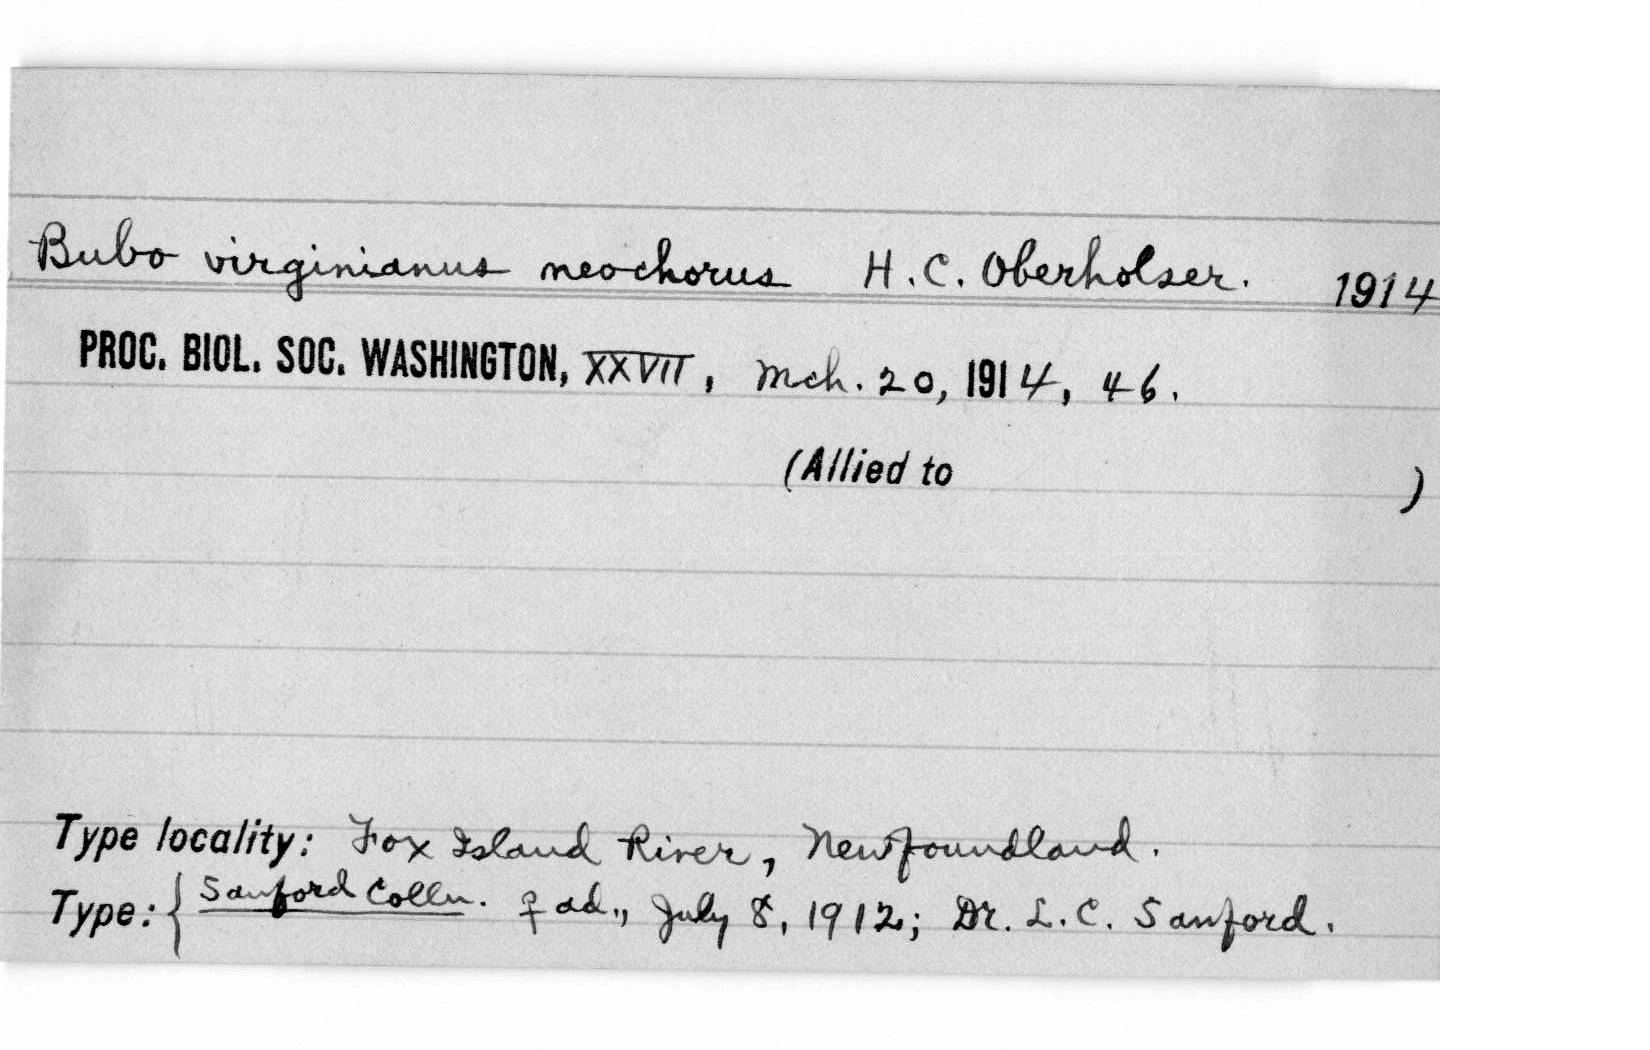 Bubo virginianus neochorus H.C. Oberholser. 1914
PROC. BIOL. SOC. WASHINGTON, XXVII, Mch. 20, 1914, 46.
(Allied to )
Type locality: Fox Island River, Newfoundland.
Type: { Sanford Colln. ♀ ad., July 8, 1912; Dr. L.C. Sanford.